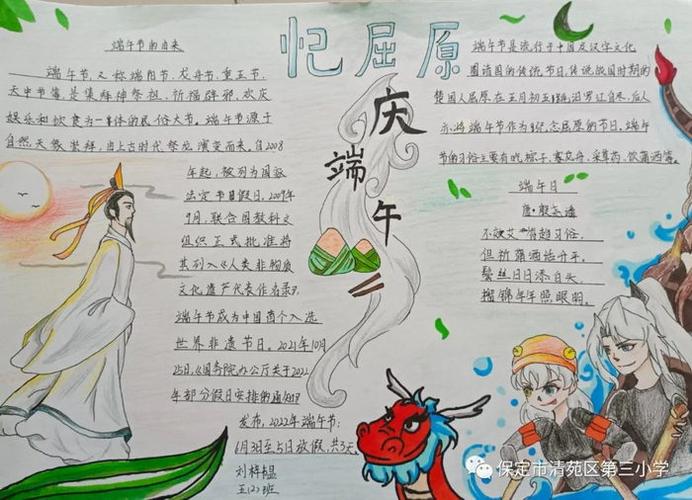 忆屈原
庆
端
午
端午节的由来
端午节,又称端阳节、龙舟节、重五节、
天中节等,是集拜神祭祖、祈福辟邪、欢庆
娱乐和饮食为一体的民俗大节。端午节源于
自然天象崇拜,由上古时代祭龙演变而来。自2008
年起,被列为国家
法定节日假日,2009年
9月,联合国教科文
组织正式批准将
其列入《人类非物质
文化遗产代表作名录》,
端午节成为中国首个入选
世界非遗节日。2021年10月
25日,《国务院办公厅关于2022
年部分假日安排的通知》
发布,2022年端午节:
6月3日至5日放假,共3天。
刘梓
五(2)班
端午节是流行于中国及汉字文化
圈诸国的传统节日,传说战国时期的
楚国人屈原在五月初五跳汨罗江自尽,后人
亦将端午节作为纪念屈原的节日。端午
节的习俗主要有吃粽子、赛龙舟、采草药、饮雄黄酒等。
端午日
唐·殷尧藩
不效艾符趋习俗,
但祈蒲酒话升平。
鬓丝日日添白头,
榴锦年年照眼明。
保定市清苑区第三小学